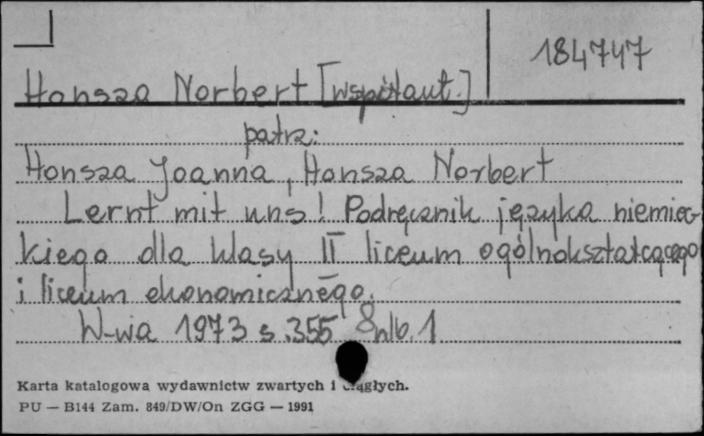 184747
Honsza Norbert [współaut.]
patrz:
Honsza Joanna, Honsza Norbert
Lernt mit uns! Podręcznik języka niemiec-
kiego dla klasy II liceum ogólnokształcącego
i liceum ekonomicznego.
W-wa 1973 s. 355 nlb. 1
Karta katalogowa wydawnictw zwartych i ciągłych.
PU — B144 Zam. 849/DW/On ZGG — 1991